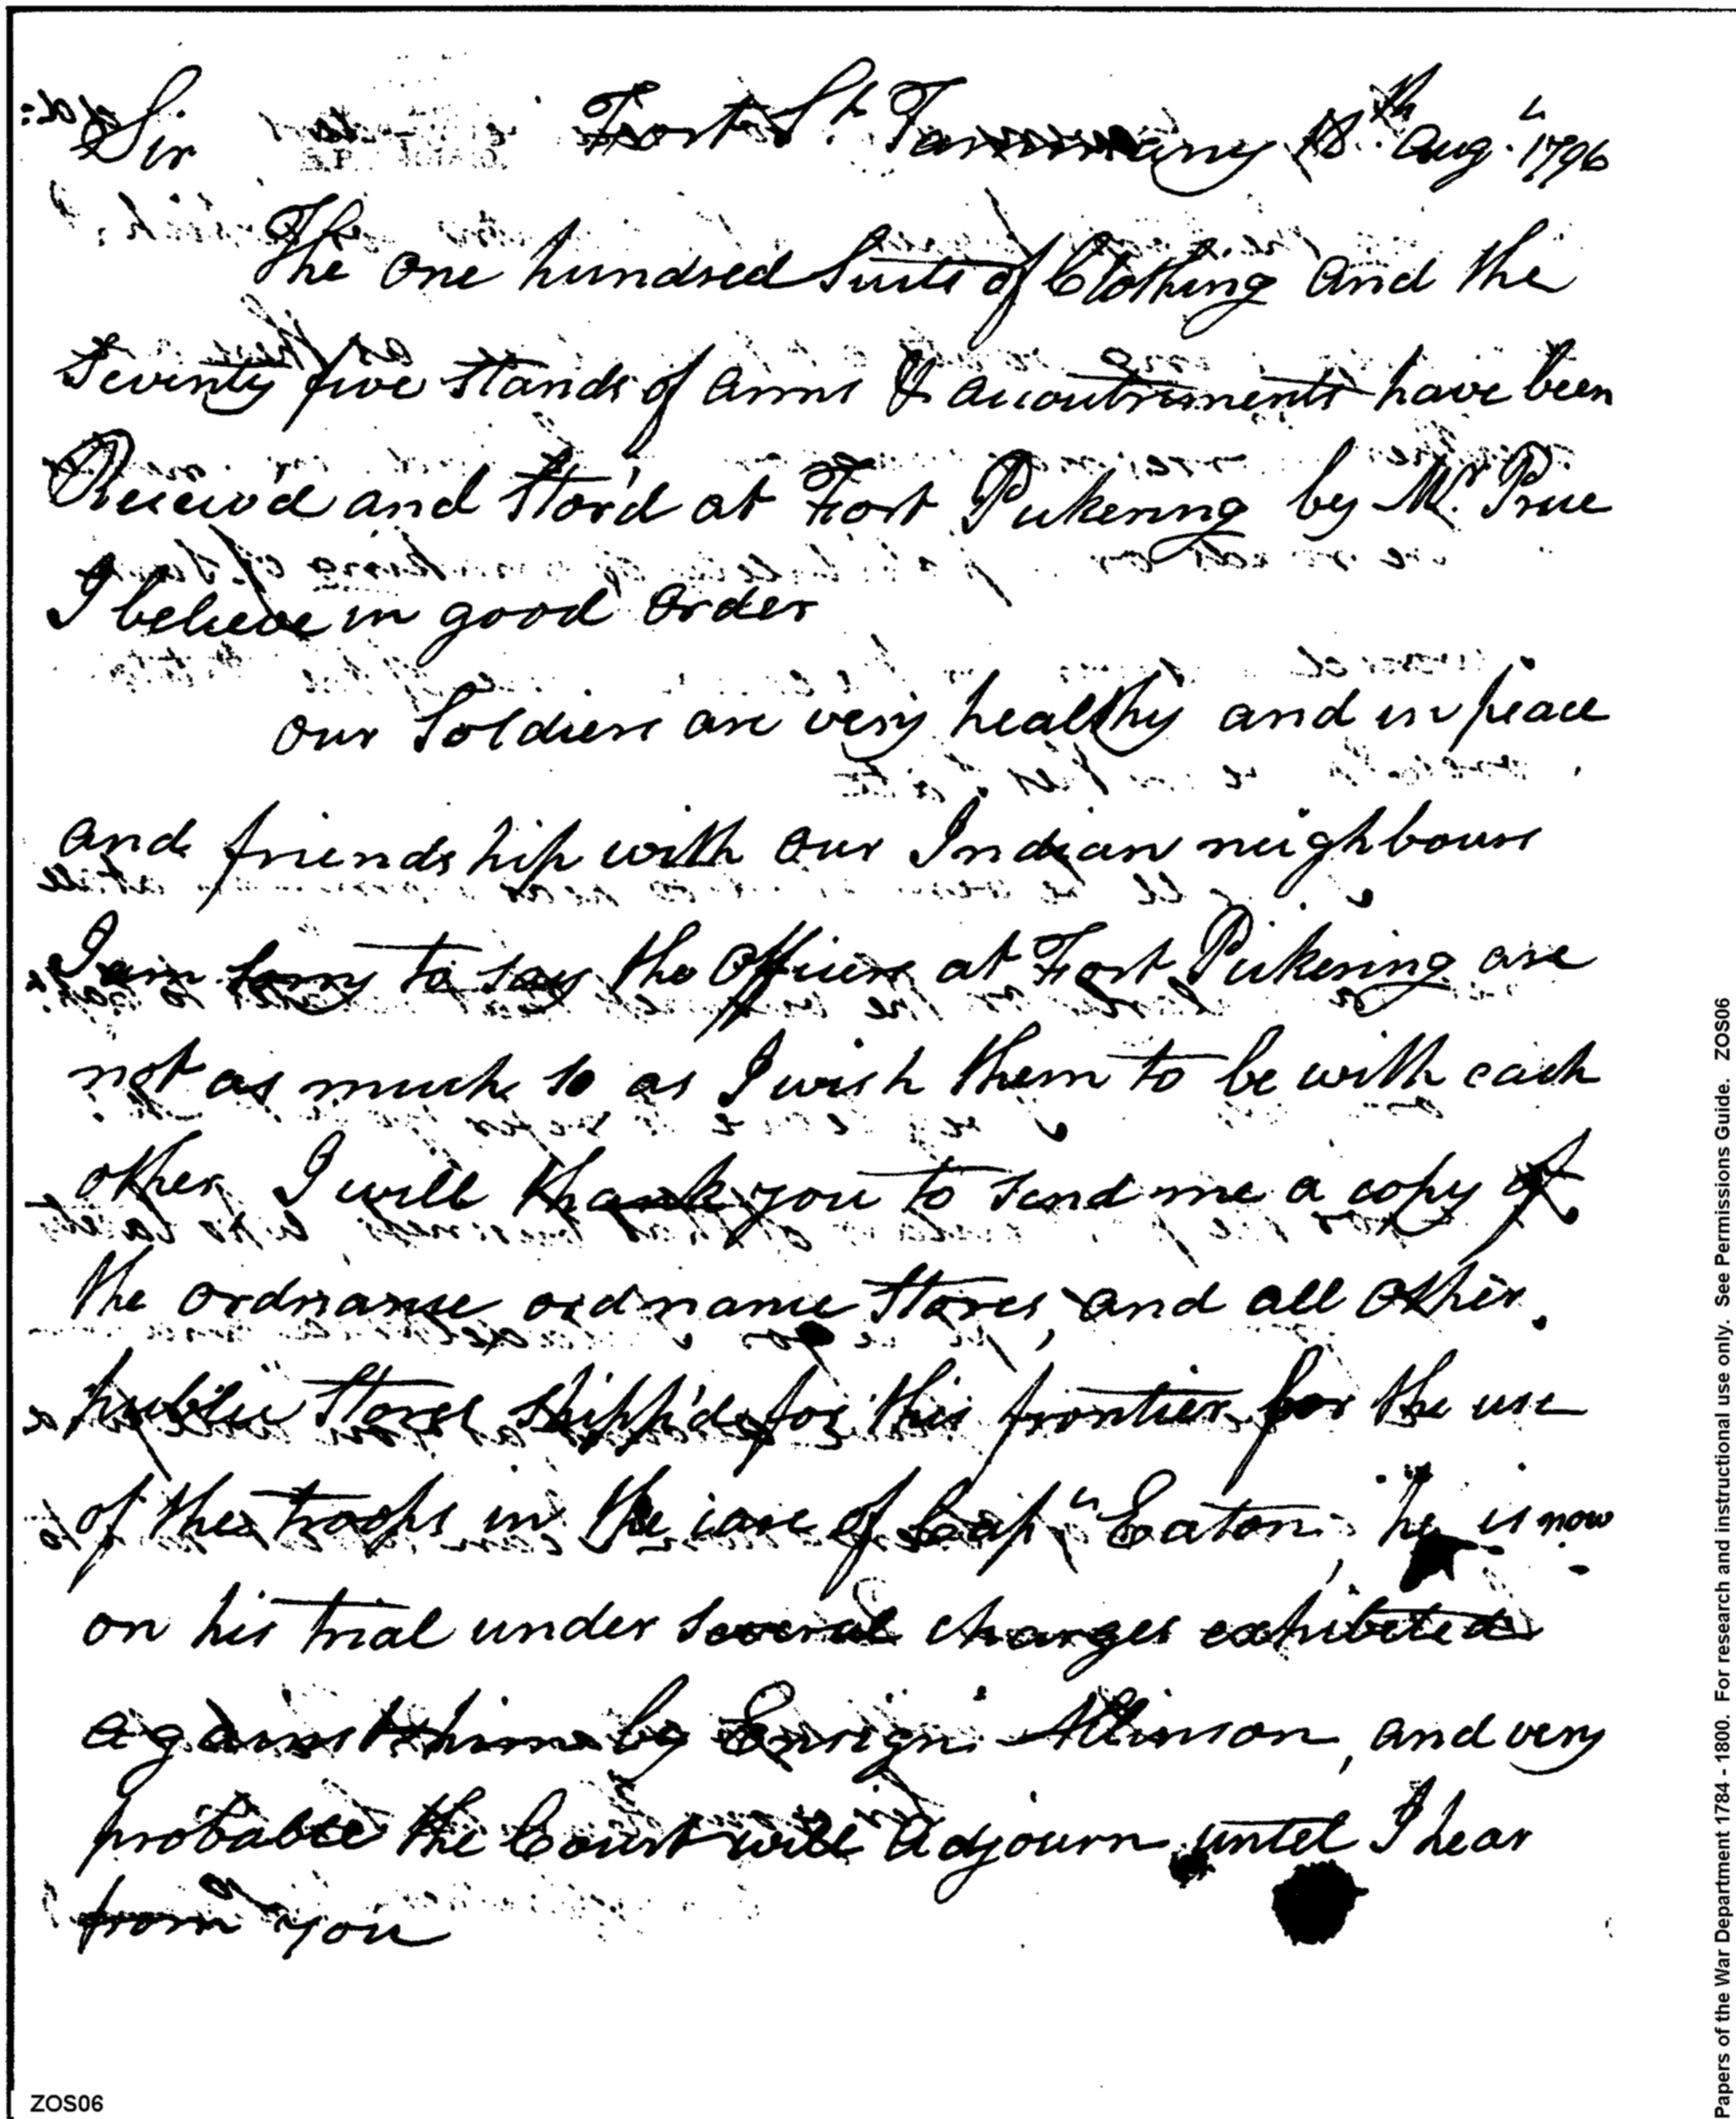 Sir Fort St. Tammany 18th. Aug. 1796
The one hundred Suits of Clothing and the
Seventy five stands of arms & accoutriments have been
Receiv'd and Stor'd at Fort Pickering by Mr. Price
I believe in good order
our Soldiers are very healthy and in peace
and friendship with our Indian neighbours
I am sorry to say the Officers at Fort Pickering are
not as much so as I wish them to be with each
other I will thank you to send me a copy of
the ordnance ordnance Stores, and all other
public Stores shipp'd for this frontier for the use
of the troops in the care of Capn Eaton, he is now
on his trial under several charges exhibeted
against him by Ensign Allinson, and very
probable the Court will adjourn until I hear
from you
ZOS06
Papers of the War Department 1784 - 1800. For research and instructional use only. See Permissions Guide. ZOS06